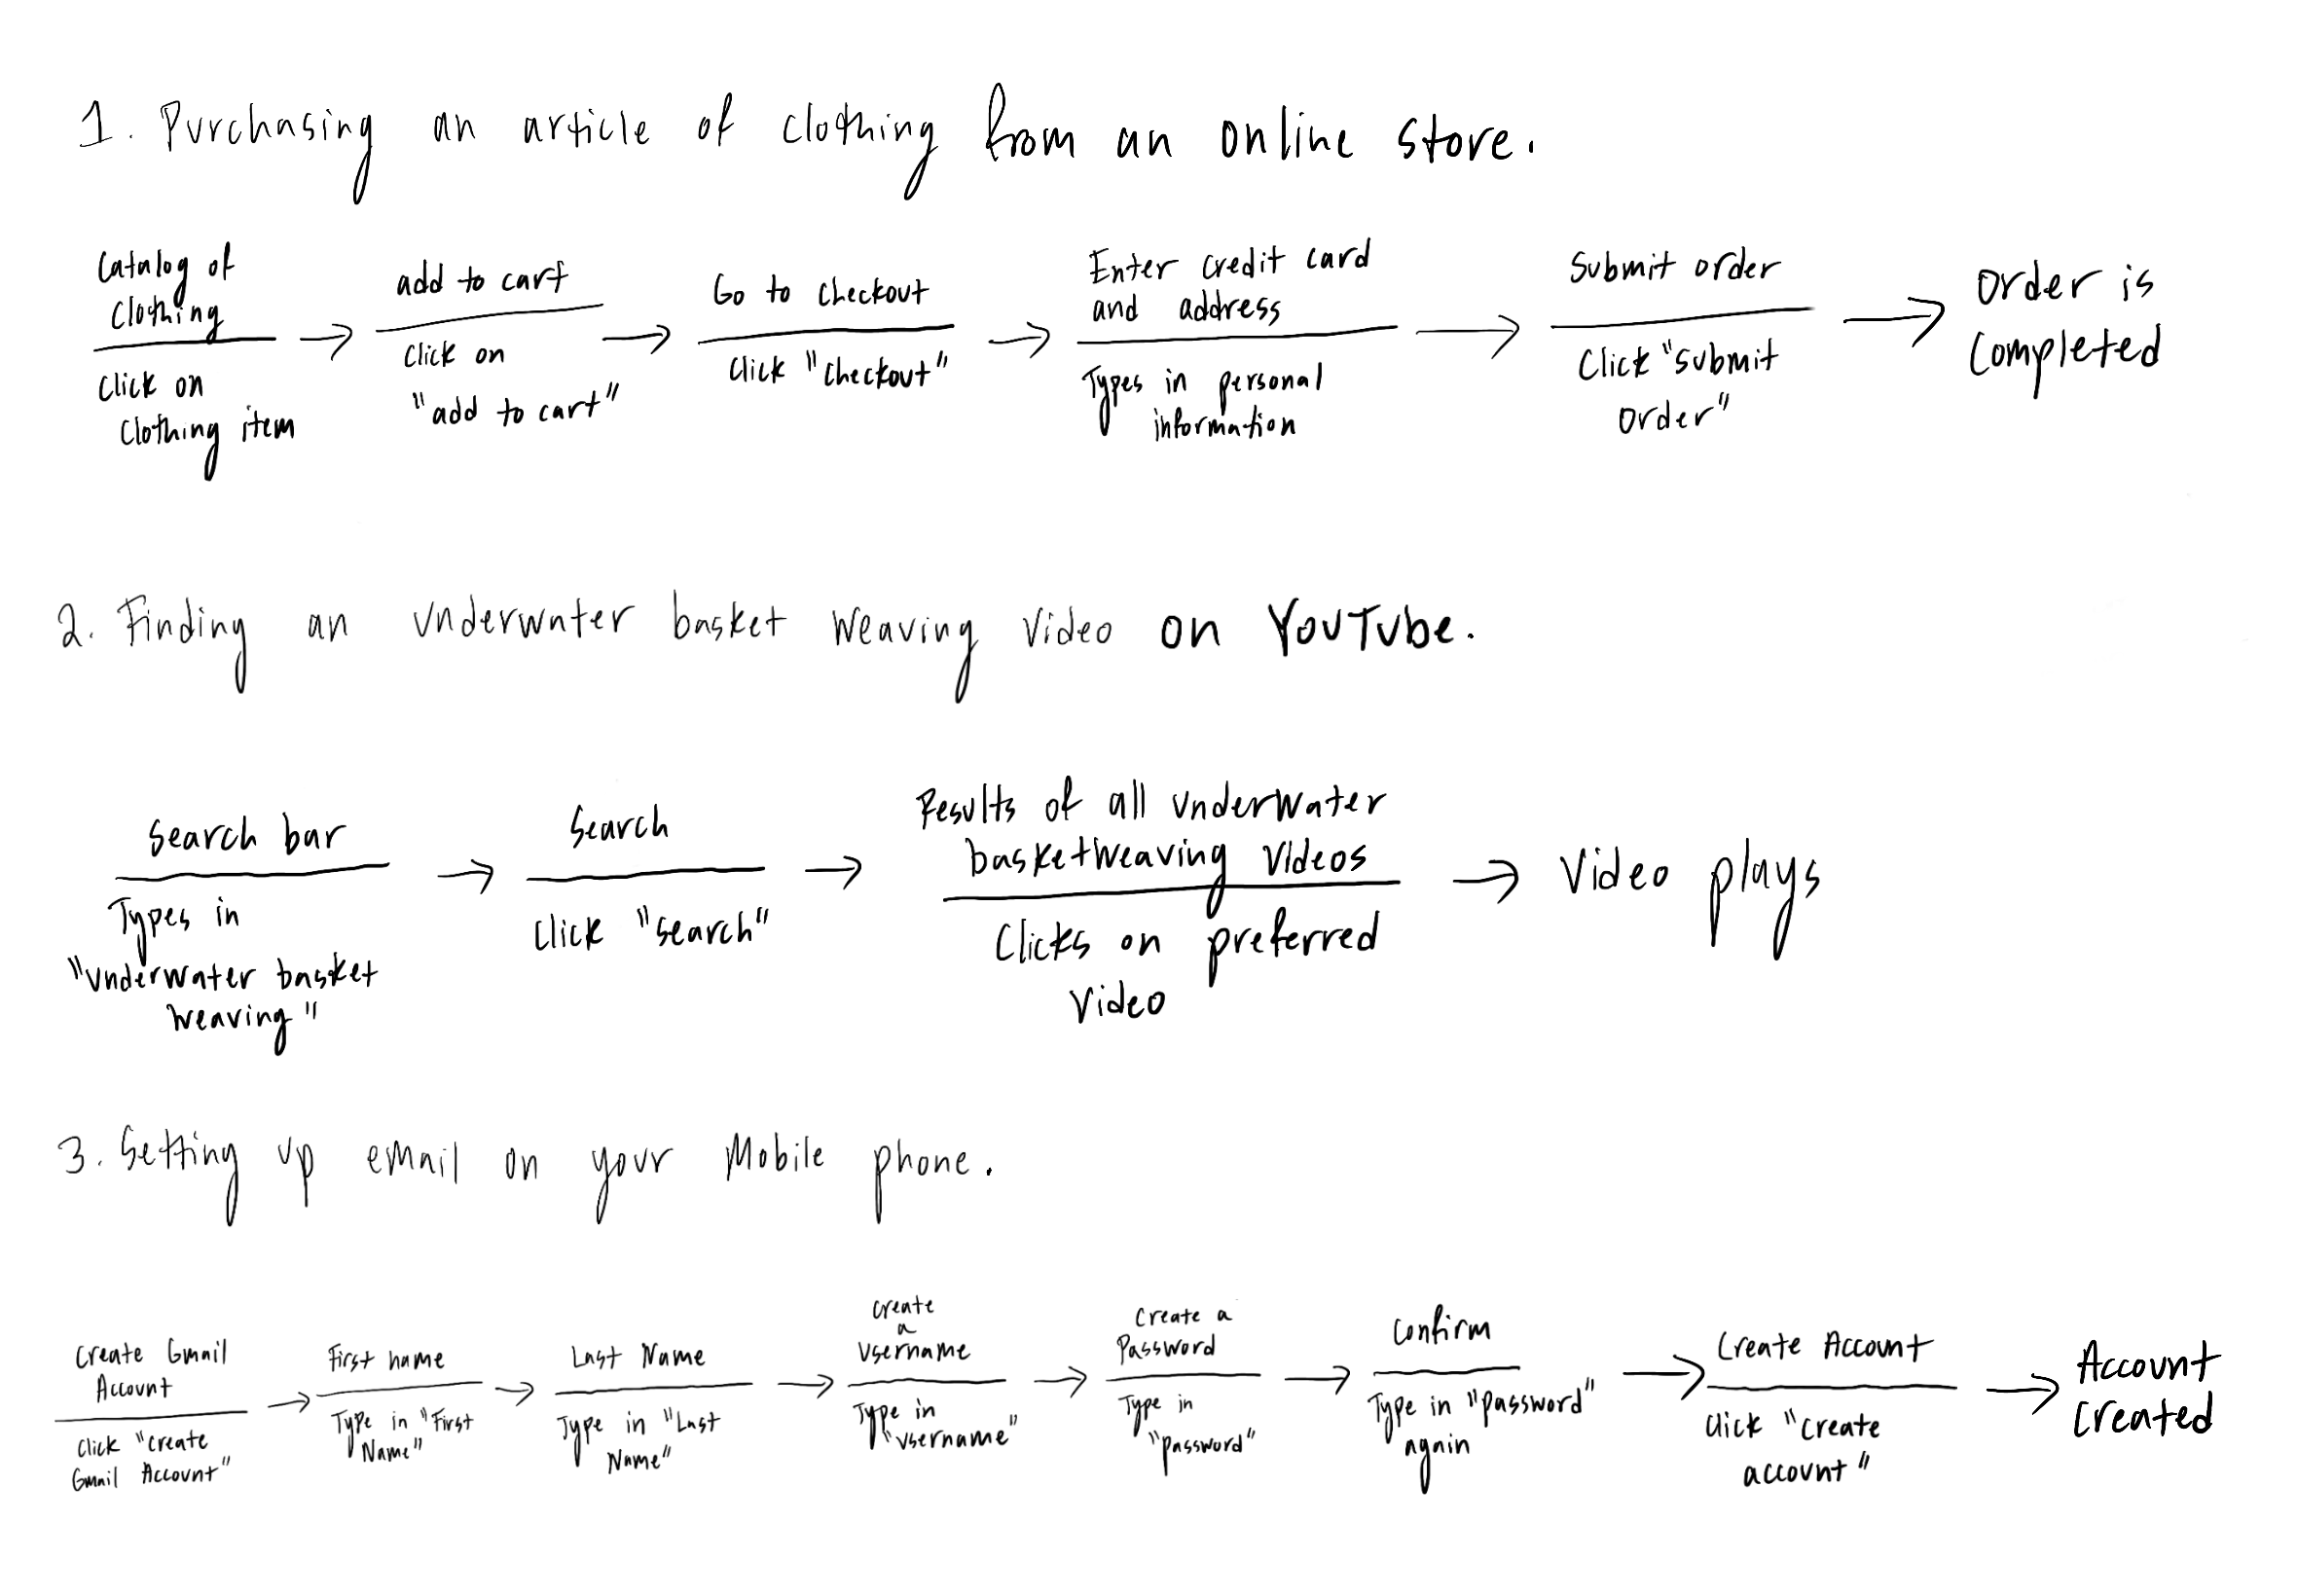 1. Purchasing an article of clothing from an online store.
Catalog of
clothing
Click on
clothing item
add to cart
Click on
"add to cart"
Go to checkout
Click "checkout"
Enter credit card
and address
Types in personal
information
Submit order
Click "submit
order"
Order is
completed
2. Finding an underwater basket weaving video on YouTube.
Search bar
Types in
"underwater basket
weaving"
Search
Click "search"
Results of all underwater
basketweaving videos
Clicks on preferred
video
Video plays
3. Setting up email on your mobile phone.
Create Gmail
Account
Click "create
Gmail Account"
First name
Type in "First
Name"
Last Name
Type in "Last
Name"
create
a
username
Type in
"username"
Create a
Password
Type in
"password"
Confirm
Type in "password"
again
Create Account
Click "create
account"
Account
created